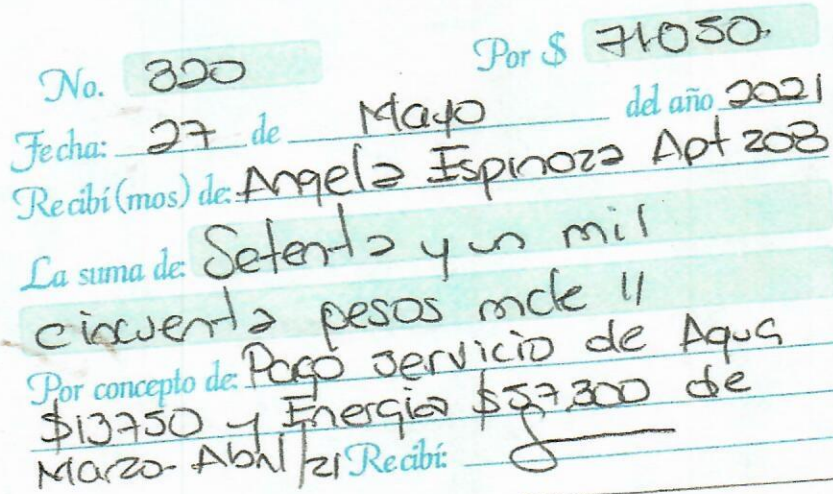 No. 320 Por $ 71.050.
Fecha: 27 de Mayo del año 2021
Recibí(mos) de: Angela Espinoza Apt 208
La suma de: Setenta y un mil
cincuenta pesos mcte //
Por concepto de: Pago servicio de Agua
$13750 y Energia $57.300 de
Marzo-Abril/21 Recibí: